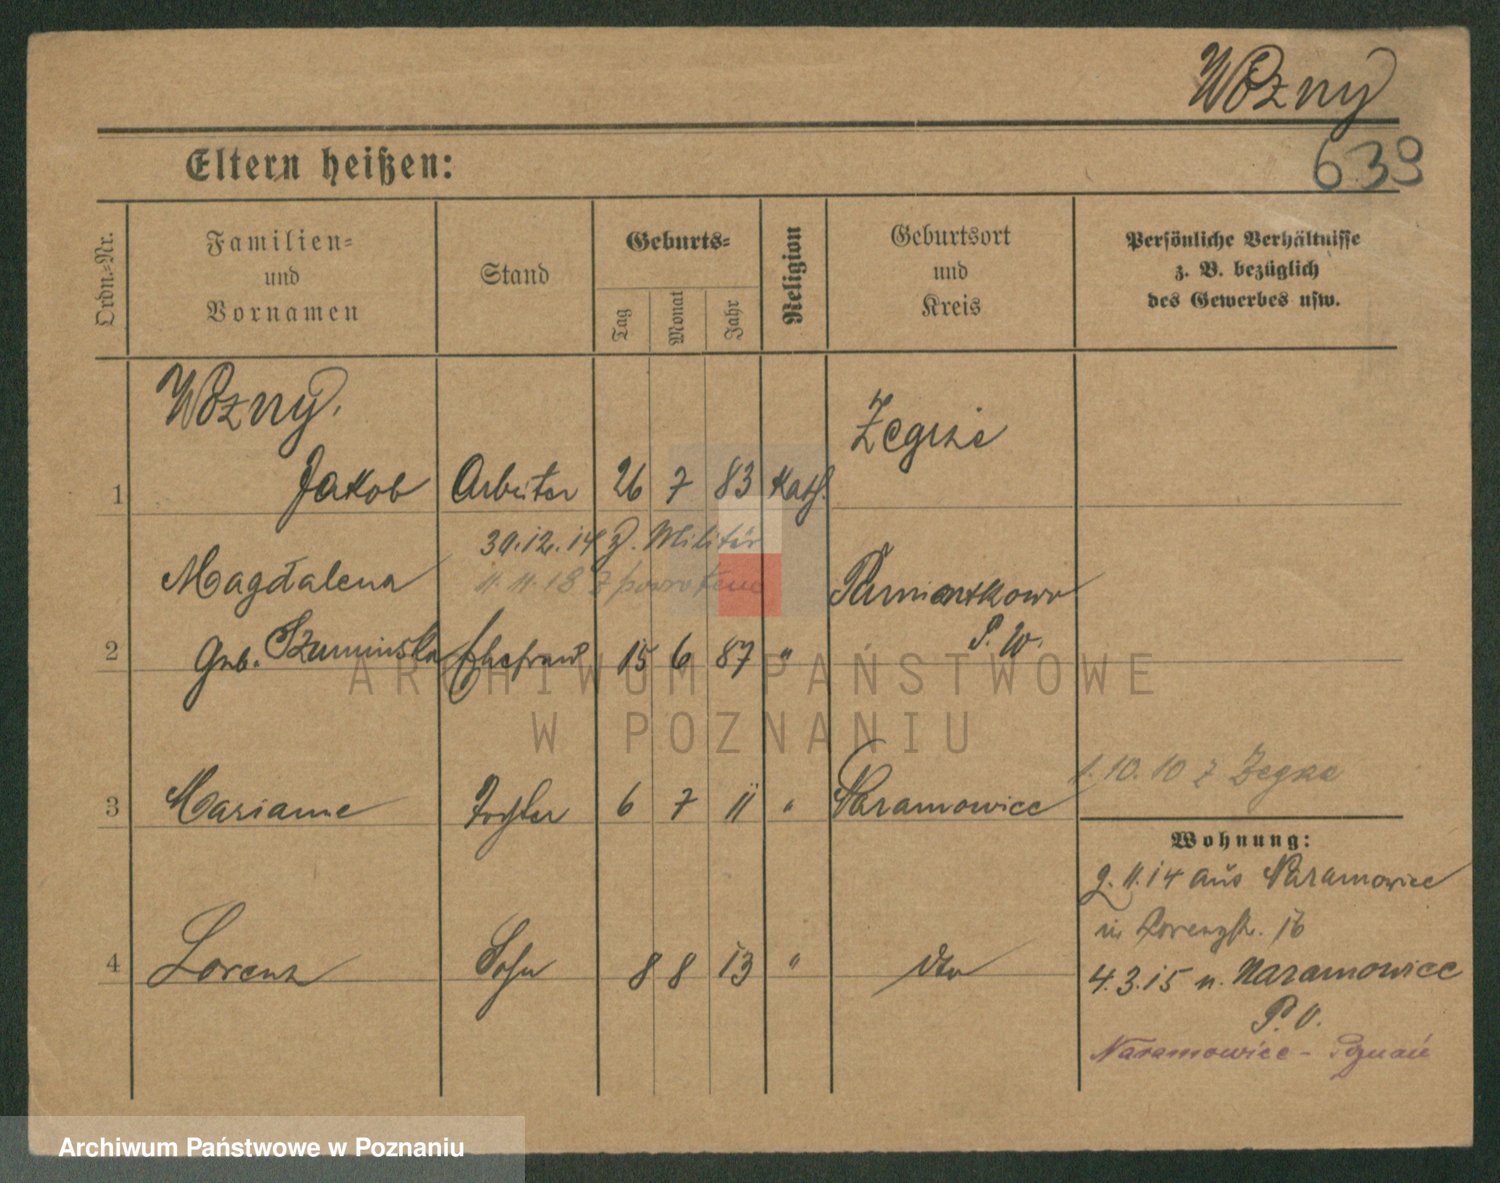 Wozny
639
Eltern heißen:
Ordn.-Nr.
Familien- und Vornamen
Stand
Geburts-
Tag
Monat
Jahr
Religion
Geburtsort und Kreis
Persönliche Verhältnisse z. B. bezüglich des Gewerbes usw.
Wozny.
1 Jakob Arbeiter 26 7 83 Kath. Zegrze
30.12.14 z. Militär
11.11.18 z
Magdalena
2 geb. Szuminska Ehefrau 15 6 87 "
P. W.
3 Marianne Tochter 6 7 11 " Naramowice
1.10.10 z Zegrze
Wohnung:
2.11.14 aus Naramowice
in Lorenzstr. 16
4 Lorenz Sohn 8 8 13 " dto
4.3.15 n. Naramowice
P. O.
Naramowice - Poznań
ARCHIWUM PAŃSTWOWE
W POZNANIU
Archiwum Państwowe w Poznaniu